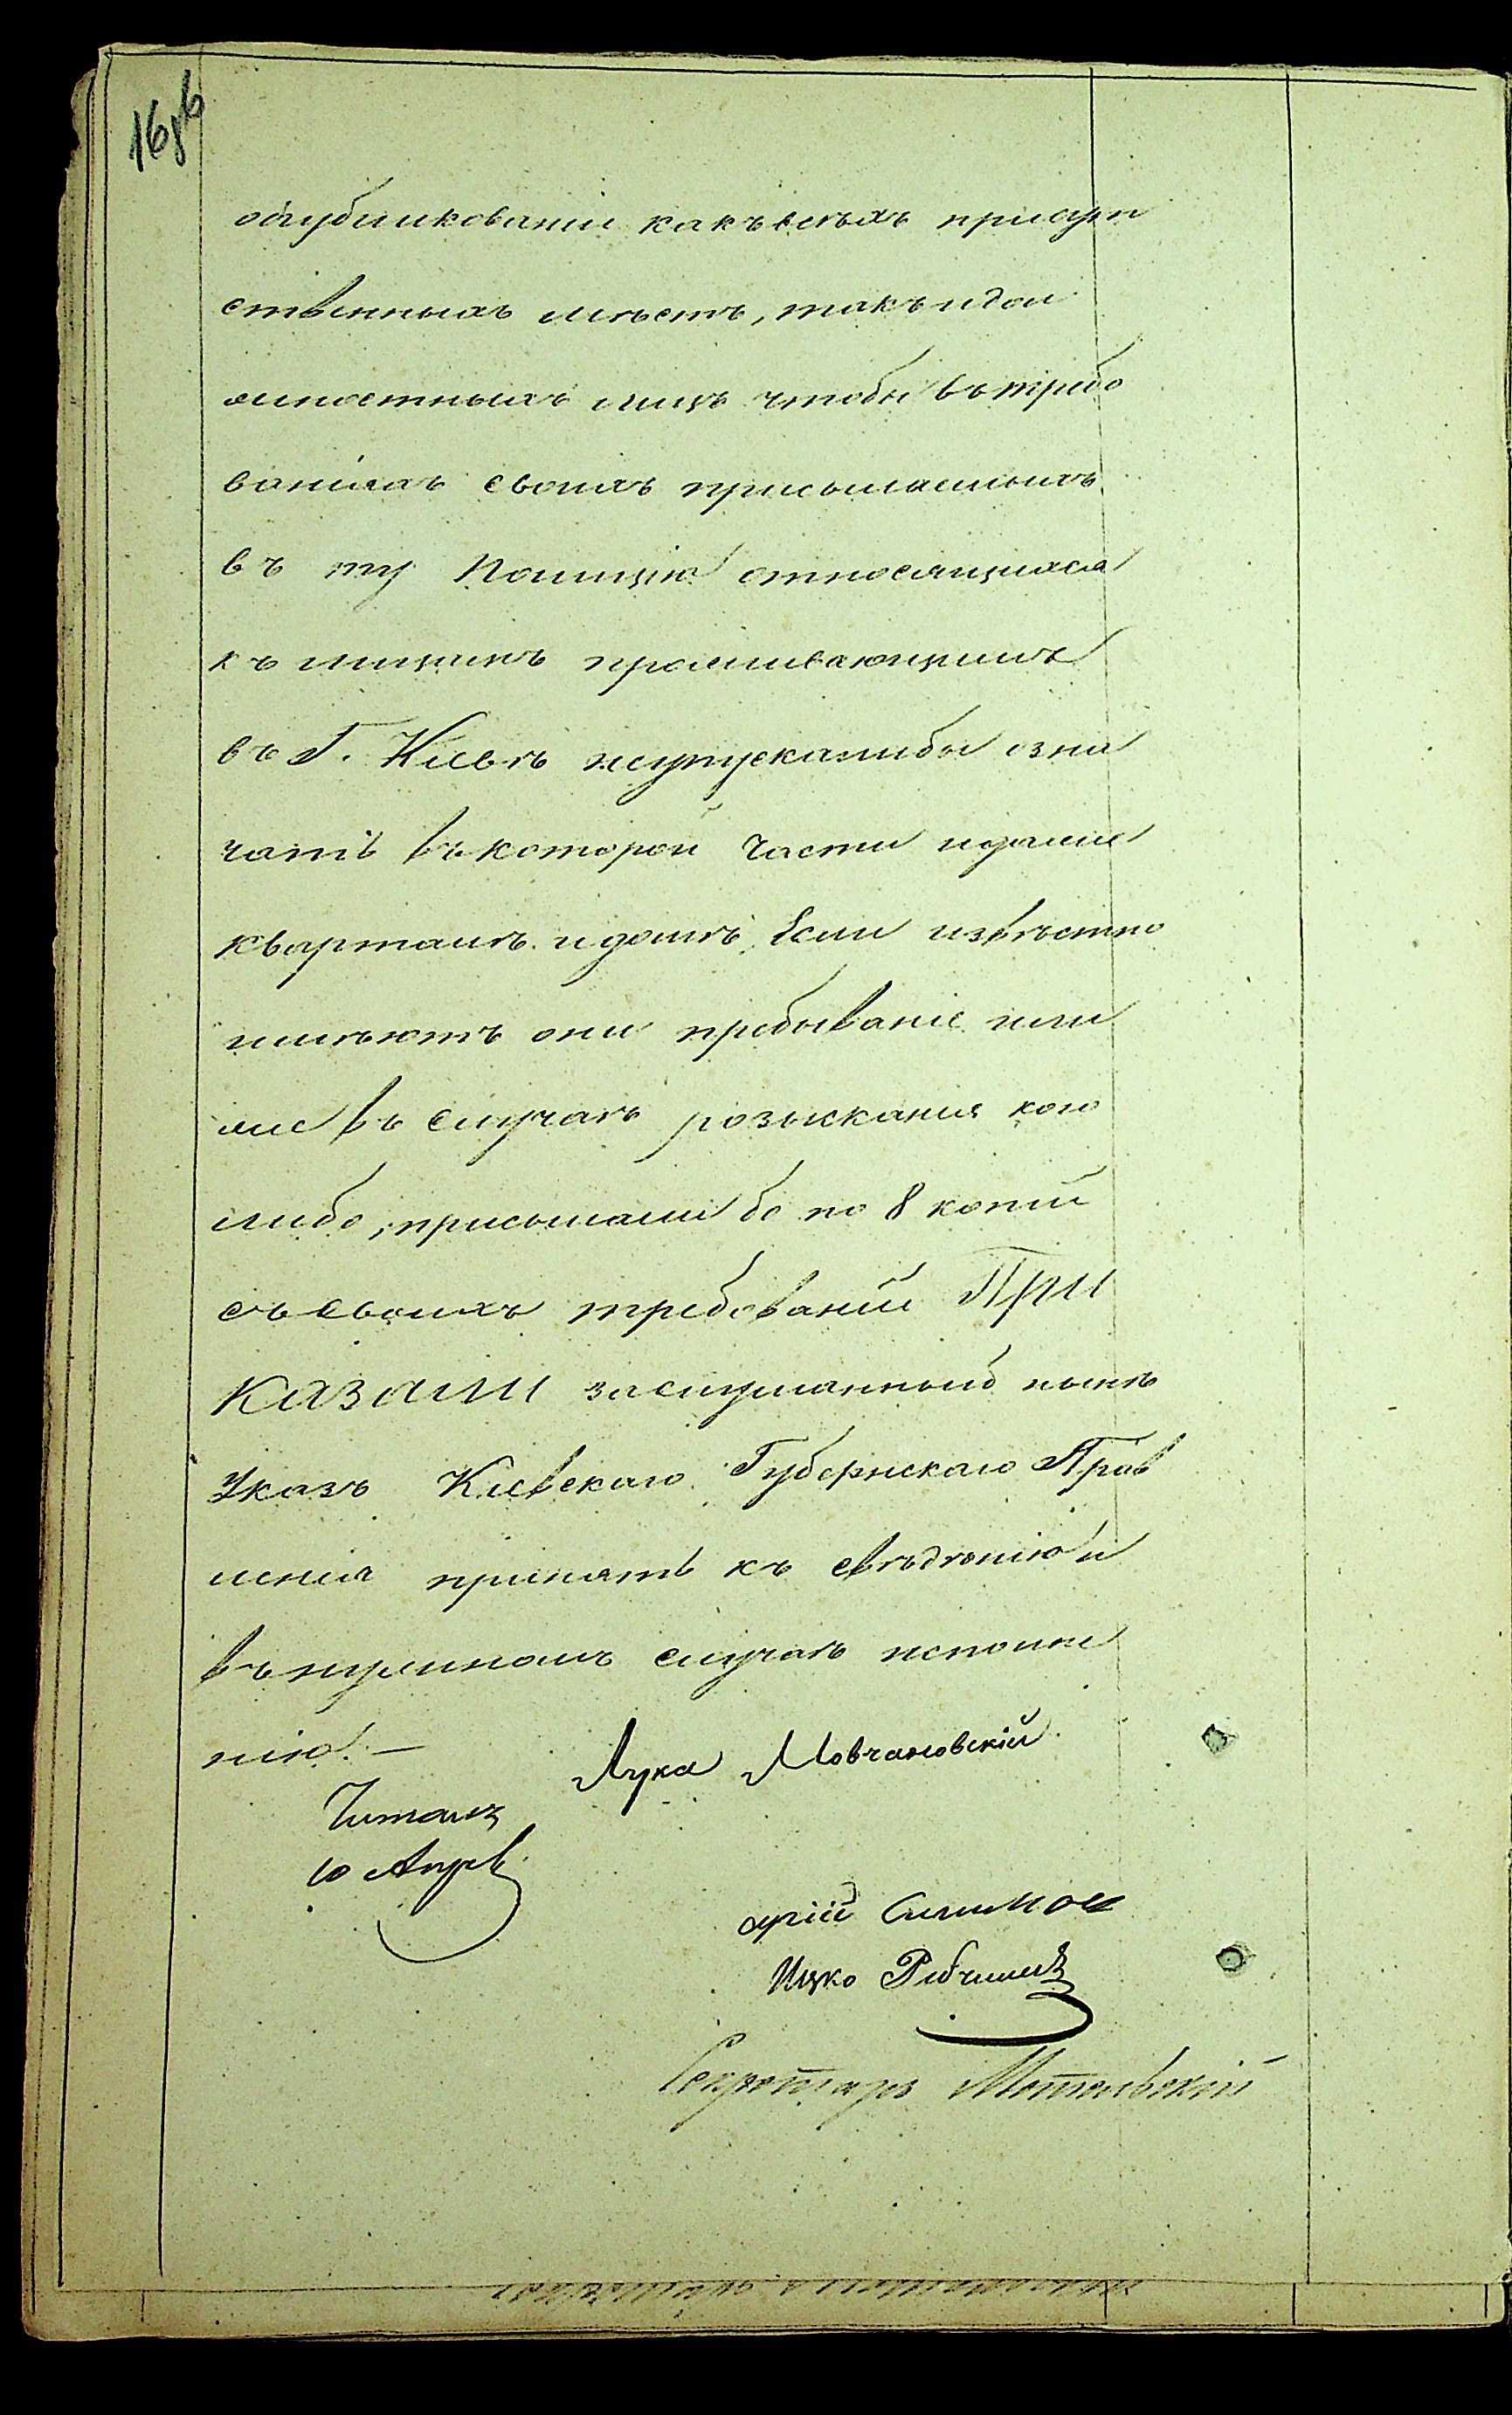 16об
опубликованіи какъ всѣхъ присут
ственныхъ мѣстъ, такъ и дол
жностныхъ лицъ чтобы въ требо
ваніяхъ своихъ присылаемыхъ
въ ту Полицію относящихся
къ лицамъ проживающимъ
въ Г. Кіевѣ неупускалибы озна
чать въ которой части и даже
кварталѣ и домѣ Если извѣстно
имѣютъ они пребываніе или
же въ случаѣ розысканія кого
либо, присылали бо по 8 копій
съ своихъ требованій ПРИ
КАЗАЛИ заслушанный нынѣ
Указъ Кіевскаго Губернскаго Прав
ленія принять къ свѣдѣнію и
въ нужномъ случаѣ исполне
нію. —
Лука Мовчановскій
Читалъ
10 Апрѣ
Ицко
Секретарь